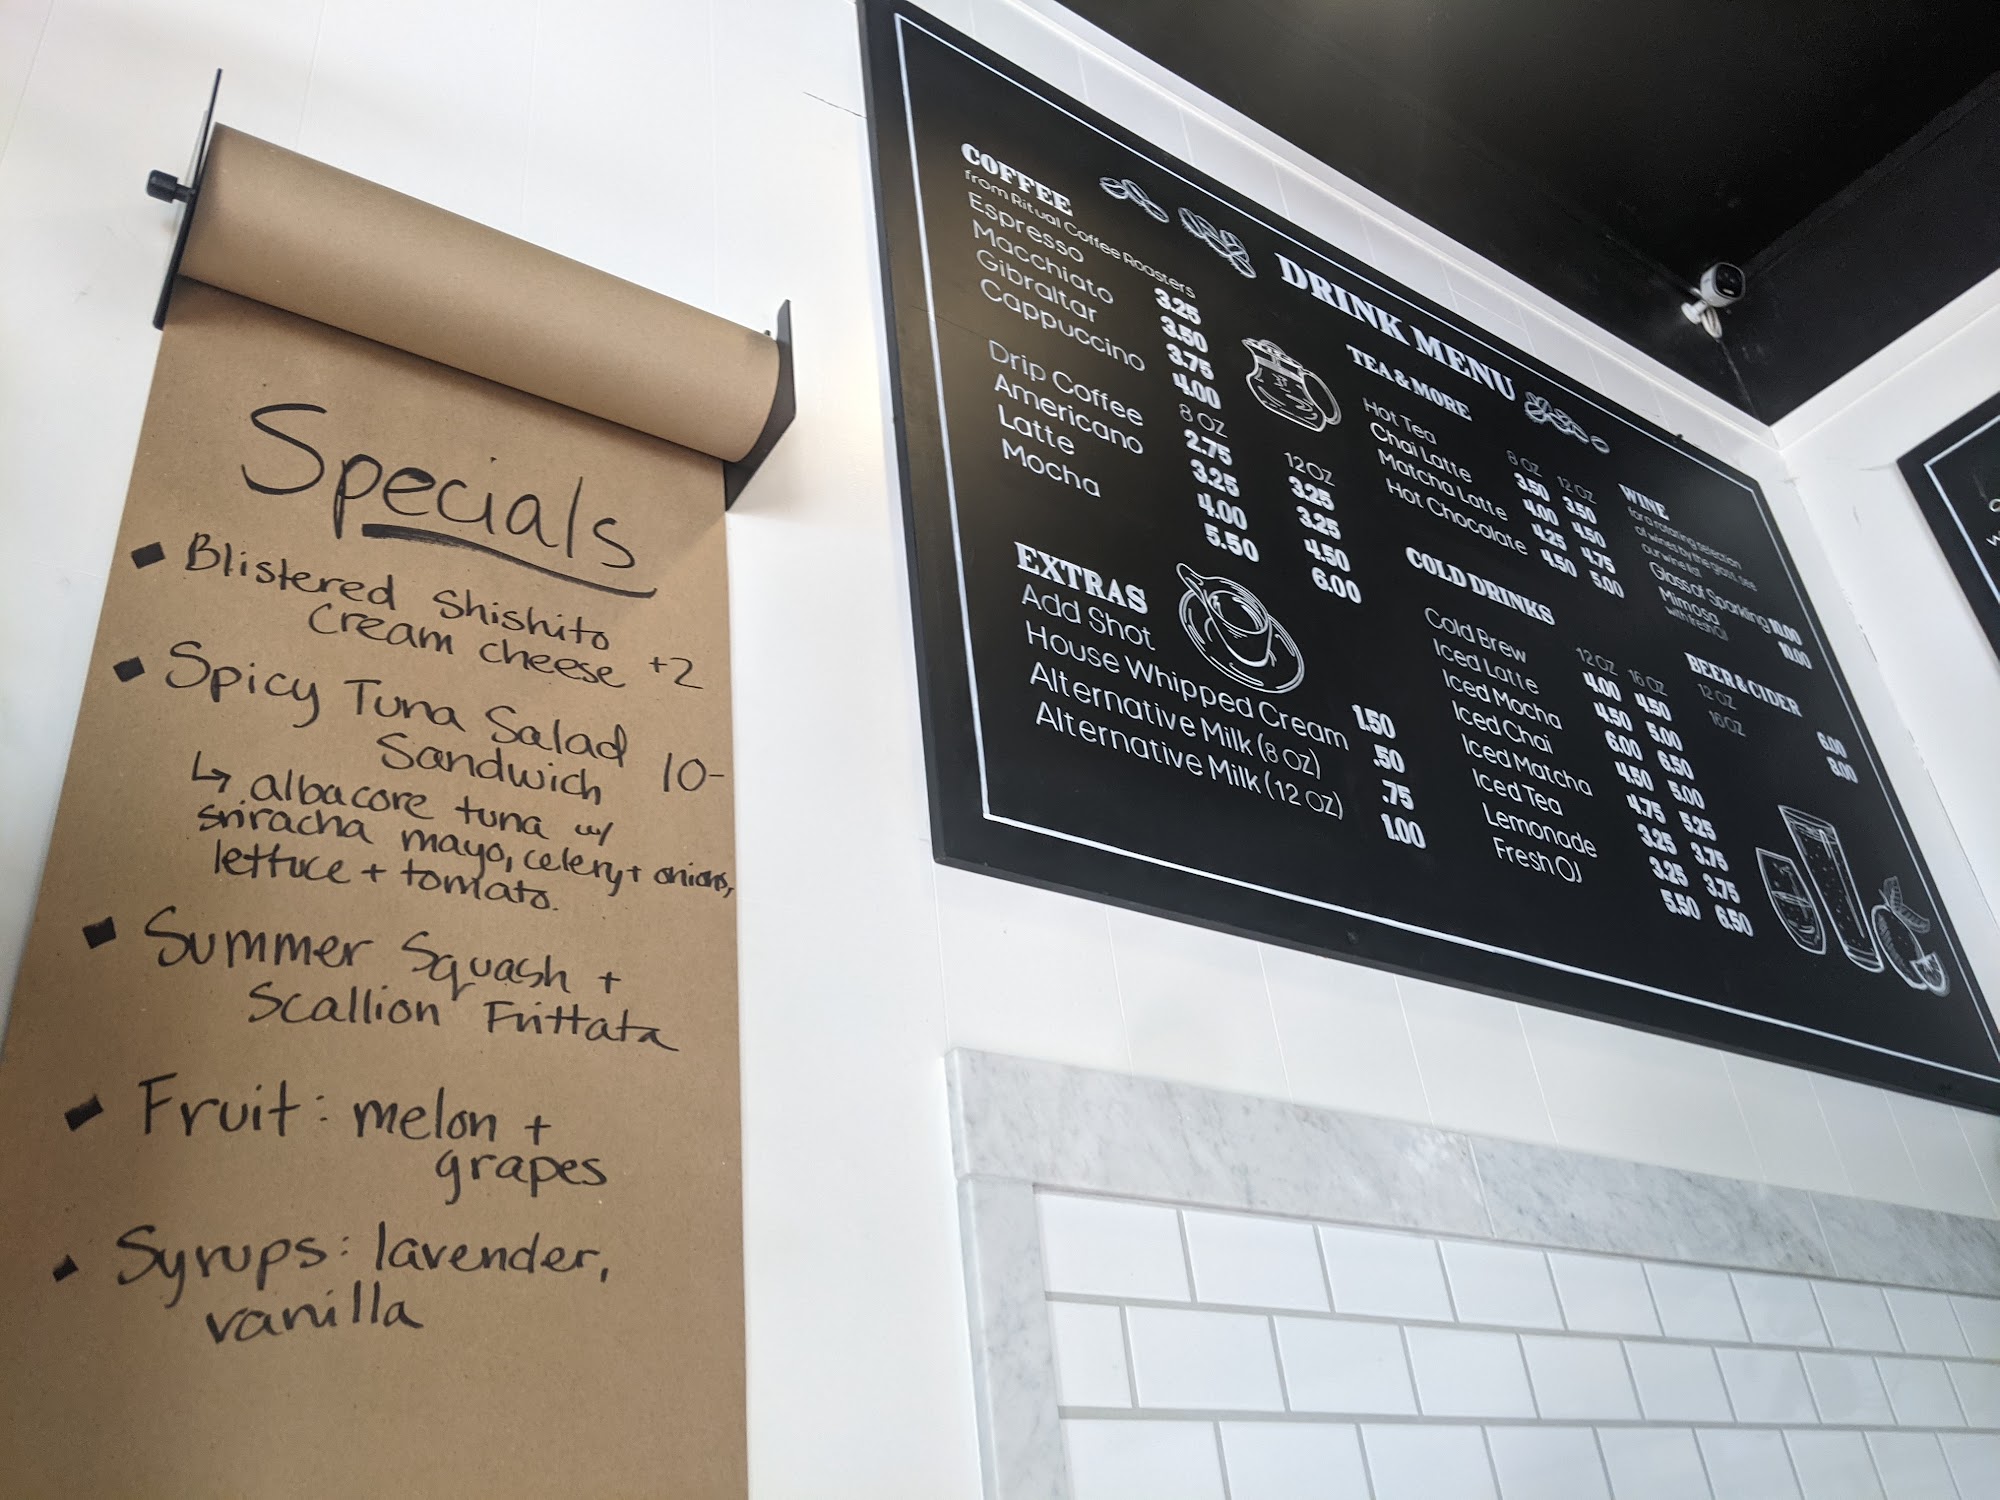 Specials
Blistered Shishito
Cream cheese +2
Spicy Tuna Salad
Sandwich 10-
↳ albacore tuna w/
sriracha mayo, celery + onions,
lettuce + tomato.
Summer Squash +
Scallion Frittata
Fruit: melon +
grapes
Syrups: lavender,
vanilla
DRINK MENU
COFFEE
from Ritual Coffee Roasters
Espresso 3.25
Macchiato 3.50
Gibraltar 3.75
Cappuccino 4.00
8 OZ 12 OZ
Drip Coffee 2.75 3.25
Americano 3.25 3.25
Latte 4.00 4.50
Mocha 5.50 6.00
EXTRAS
Add Shot 1.50
House Whipped Cream .50
Alternative Milk (8 OZ) .75
Alternative Milk (12 OZ) 1.00
TEA & MORE
8 OZ 12 OZ
Hot Tea 3.50 3.50
Chai Latte 4.00 4.50
Matcha Latte 4.25 4.75
Hot Chocolate 4.50 5.00
COLD DRINKS
12 OZ 16 OZ
Cold Brew 4.00 4.50
Iced Latte 4.50 5.00
Iced Mocha 6.00 6.50
Iced Chai 4.50 5.00
Iced Matcha 4.75 5.25
Iced Tea 3.25 3.75
Lemonade 3.25 3.75
Fresh OJ 5.50 6.50
WINE
for a rotating selection
of wines by the glass, see
our wine list
Glass of Sparkling 10.00
Mimosa 10.00
with fresh OJ
BEER & CIDER
12 OZ 6.00
16 OZ 8.00